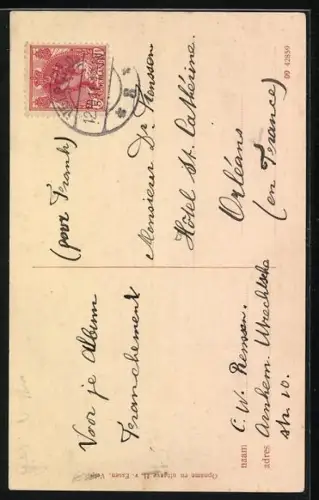 (pour Frank)
Monsieur Dr. Renssen
Hôtel St. Cathérine.
Orléans
(en France)
Voor je Album
Franchement
naam C. W. Renssen.
adres Arnhem. Utrechtsche
str. 10.
Opname en uitgave H. v. Essen,
99 42850